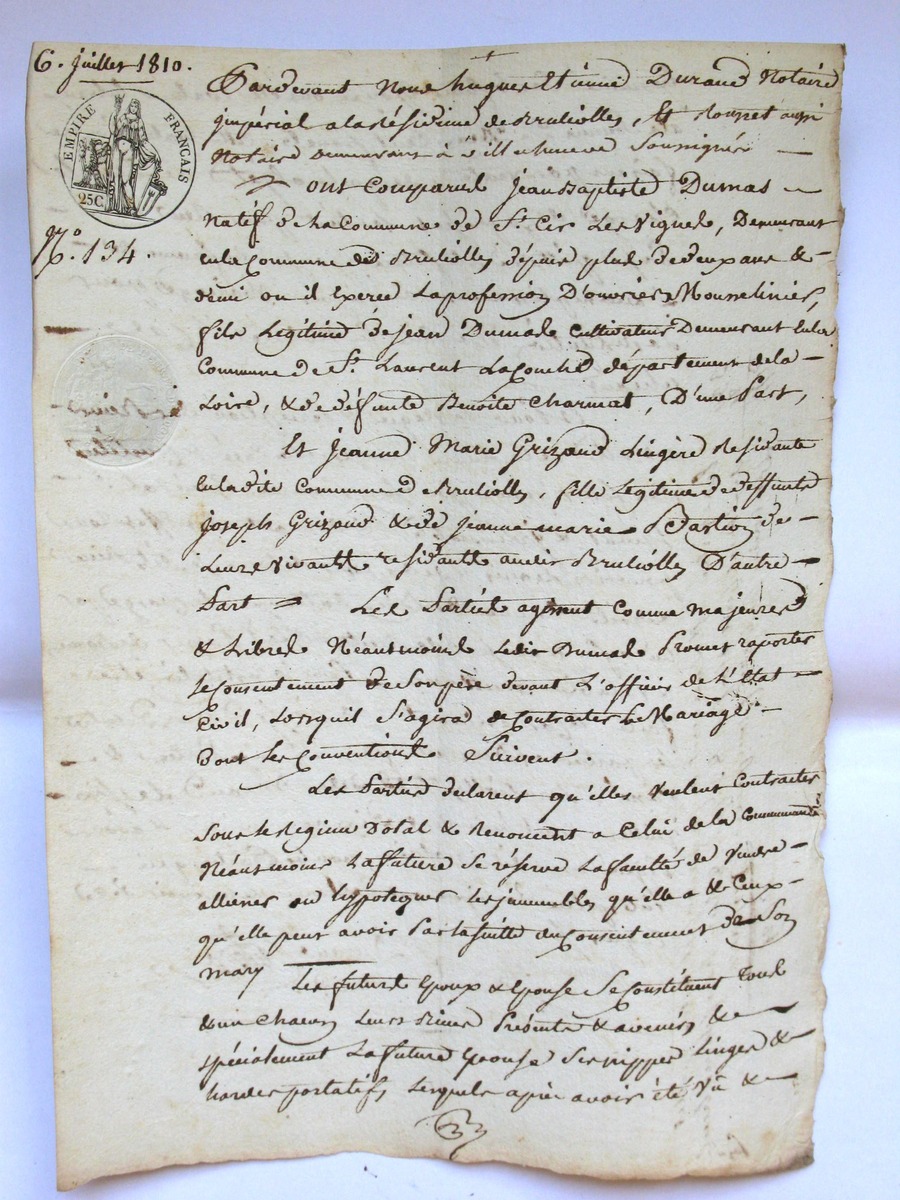 6. juillet 1810.
EMPIRE FRANÇAIS
25C
N.o 134.
Pardevant Nous hugues Etienne Durand Notaire
jmpérial a la résidence de Bruliolles, Et Rousset aussi
Notaire demeurant à ville cheneve Soussignés
ont Comparus Jean Baptiste Dumas
Natif de la Commune de St. Cir Les Vignes, Demeurant
en la Commune de Brulliolles depuis plus de deux ans &
demi ou il Exerce La profession D'ouvrier Mousselinier,
fils Legitime de jean Dumas Cultivateur Demeurant en la
Commune de St. Laurent La Conche département de la
Loire, & de défunte Benoite Charmat, D'une Part,
Et Jeanne Marie Grizaud Lingère Residante
En la dite Commune de Brulliolles, fille Legitime de deffunts
Joseph Grizaud & de Jeanne marie Bastion de
Leurs vivants residants audit Brulliolles D'autre
Part = Les Parties agissent Comme majeures
& Libres Néantmoins Ledit Dumas Promet raporter
le Consentement de Son père devant L'officier de L'Etat
Civil, Lorsquil S'agira de Contracter le Mariage
Dont les Conventions Suivent.
Les Parties declarent qu'elles veulent Contracter
Sous le Regime Dotal & Renoncent a Celui de la Communauté
Néantmoins La future Se réserve La faculté de Vendre
alliéner ou hypotequer les jmmeubles qu'elle a & Ceux
qu'elle peut avoir Par la suitte du Consentement de Son
mary Les futurs Epoux & Epouse Se Constituent Tous
& un Chacun Leurs Biens Présents & avenirs &
spécialement La future Epouse Ses nippes Linges &
hardes portatifs, lesquels après avoir été Vû &